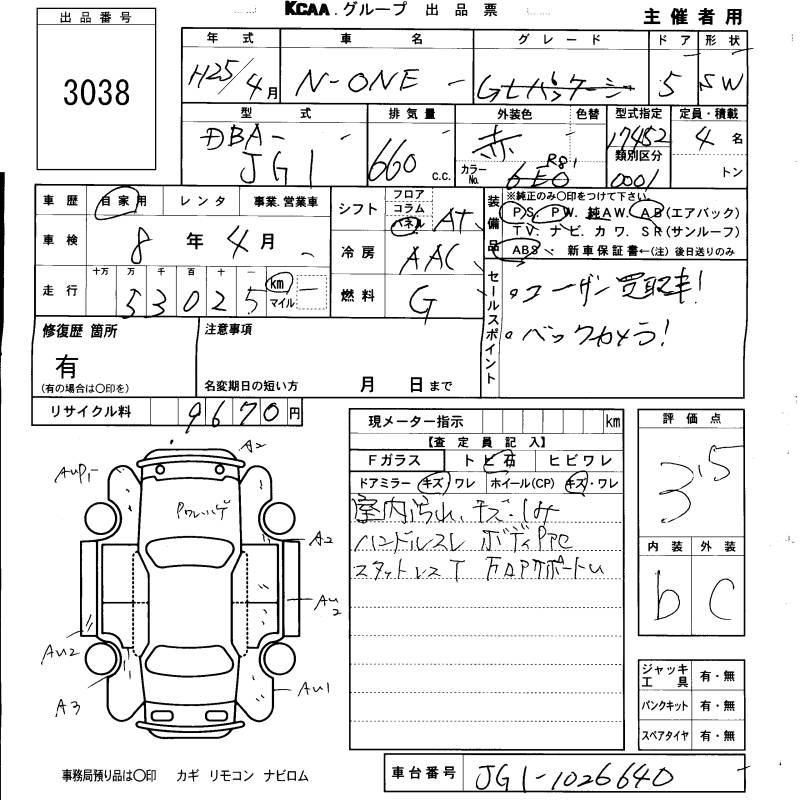 KCAA.グループ 出品票
主催者用
出品番号
3038
年式 車名 グレード ドア 形状
H25/4月 N-ONE - GLパッケージ 5 SW
型式 排気量 外装色 色替 型式指定 定員・積載
DBA- JG1 660 c.c. 赤 17452 4名
カラーNo. R81 類別区分 0001 トン
車歴 自家用 レンタ 事業.営業車
車検 8年4月
走行 十万 万 千 百 十 一
53025 km マイル
シフト フロア コラム パネル AT
冷房 AAC
燃料 G
装備品 ※純正のみ○印をつけて下さい
PS. PW. 純AW. AB(エアバック)
TV. ナビ. カワ. SR(サンルーフ)
ABS 新車保証書←(注)後日送りのみ
セールスポイント
・ユーザー買取車!
・バックカメラ!
修復歴 箇所
有
(有の場合は○印を)
注意事項
名変期日の短い方 月 日まで
リサイクル料 9670円
現メーター指示 km
【査定員記入】
Fガラス トビ石 ヒビワレ
ドアミラー キズ・ワレ ホイール(CP) キズ・ワレ
室内汚れ、キズ・しみ
ハンドルスレ ボディPPC
スタットレスT
評価点
3.5
内装 外装
b C
A2
AUP1
Pワレハゲ
A2
AU2
AU2
A3
AU1
ジャッキ工具 有・無
パンクキット 有・無
スペアタイヤ 有・無
事務局預り品は○印 カギ リモコン ナビロム
車台番号 JG1-1026640